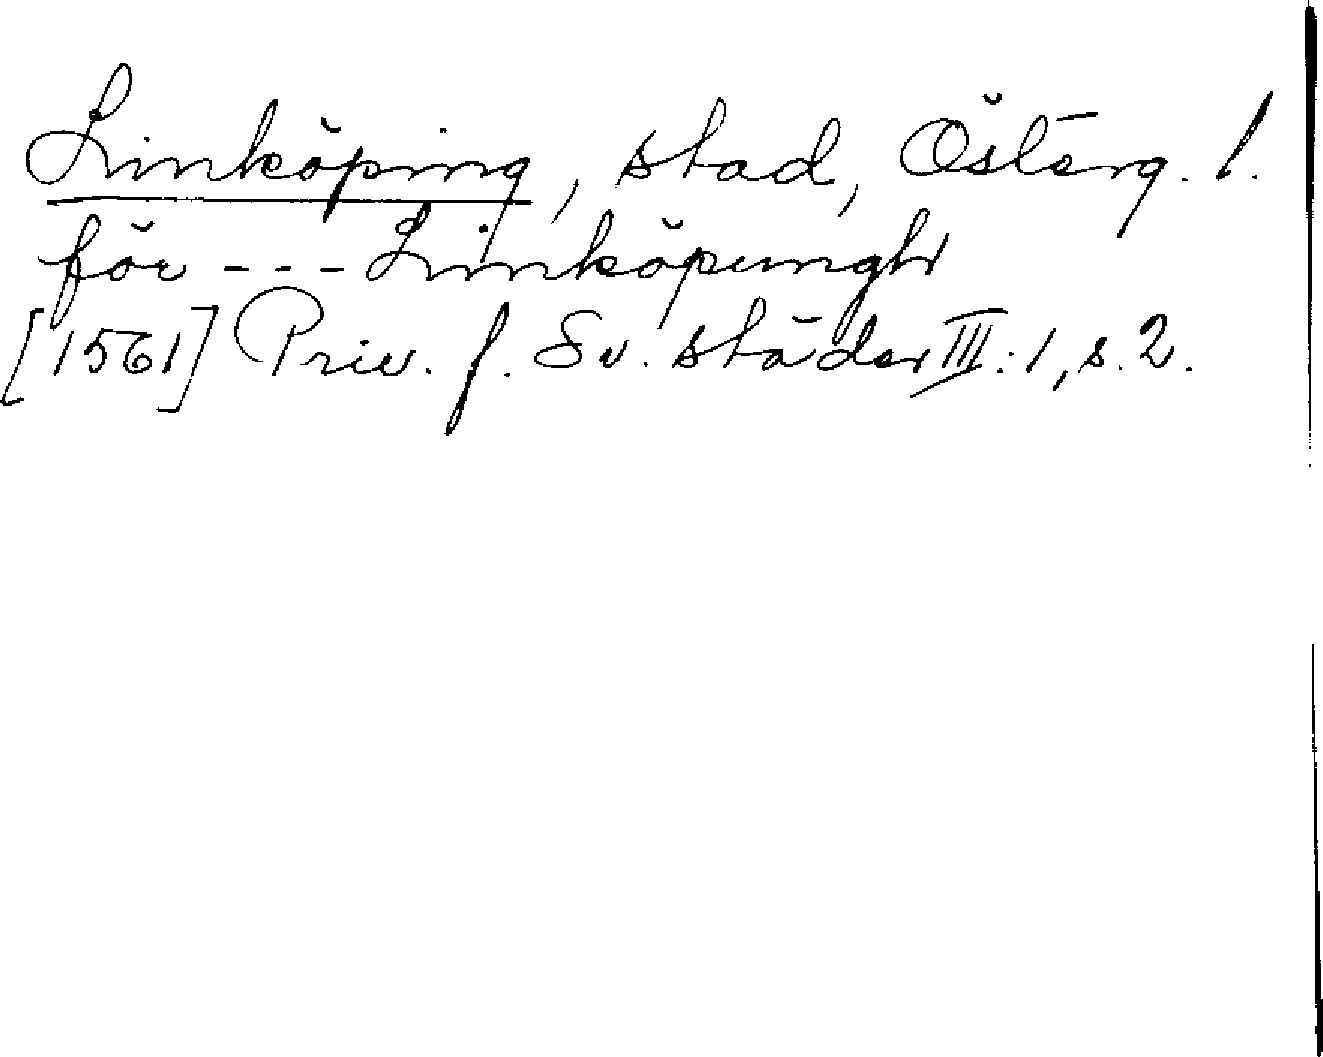 Linköping, stad, Österg. l.
för - - - Linköpungh
[1561] Priv. f. Sv. städer III:1, s. 2.